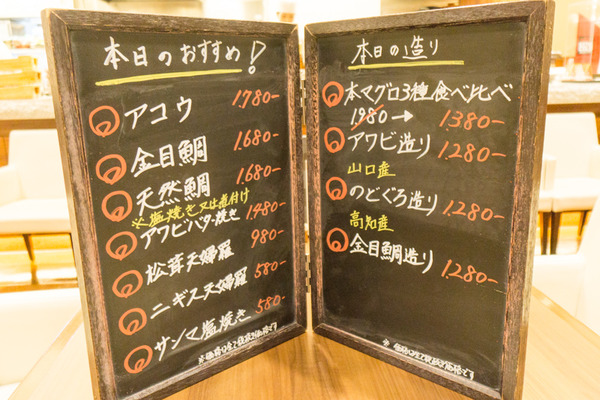 本日のおすすめ!
アコウ 1.780-
金目鯛 1.680-
天然鯛 1.680-
※塩焼き又は煮付け
アワビバター焼き 1480-
松茸天婦羅 980-
ニギス天婦羅 580-
サンマ塩焼き 580-
本日の造り
本マグロ3種食べ比べ
1,980→ 1.380-
アワビ造り 1.280-
山口産
のどぐろ造り 1.280-
高知産
金目鯛造り 1280-